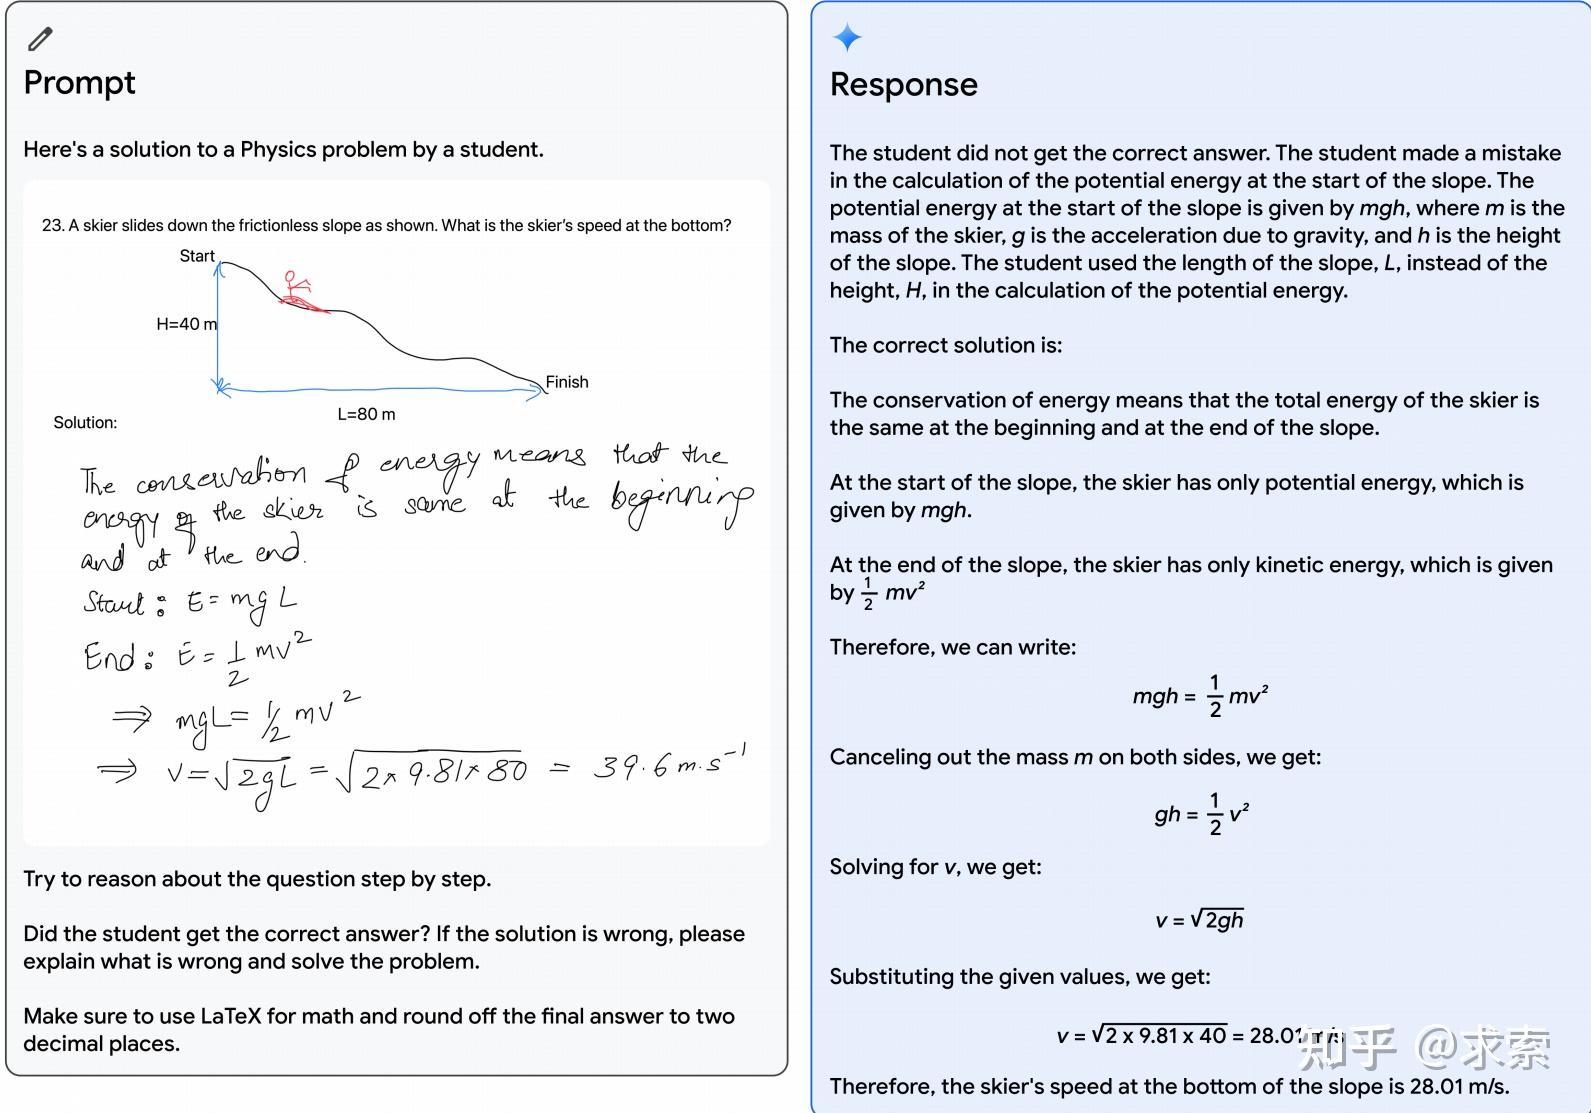 Prompt
Here's a solution to a Physics problem by a student.
23. A skier slides down the frictionless slope as shown. What is the skier's speed at the bottom?
Start
H=40 m
Finish
L=80 m
Solution:
The conservation of energy means that the
energy of the skier is same at the beginning
and at the end.
Start: E = mgL
End: E = 1/2 mv²
⇒ mgL = 1/2 mv²
⇒ v = √2gL = √2 × 9.81 × 80 = 39.6 m.s⁻¹
Try to reason about the question step by step.
Did the student get the correct answer? If the solution is wrong, please
explain what is wrong and solve the problem.
Make sure to use LaTeX for math and round off the final answer to two
decimal places.
Response
The student did not get the correct answer. The student made a mistake
in the calculation of the potential energy at the start of the slope. The
potential energy at the start of the slope is given by mgh, where m is the
mass of the skier, g is the acceleration due to gravity, and h is the height
of the slope. The student used the length of the slope, L, instead of the
height, H, in the calculation of the potential energy.
The correct solution is:
The conservation of energy means that the total energy of the skier is
the same at the beginning and at the end of the slope.
At the start of the slope, the skier has only potential energy, which is
given by mgh.
At the end of the slope, the skier has only kinetic energy, which is given
by 1/2 mv²
Therefore, we can write:
mgh = 1/2 mv²
Canceling out the mass m on both sides, we get:
gh = 1/2 v²
Solving for v, we get:
v = √2gh
Substituting the given values, we get:
v = √2 x 9.81 x 40 = 28.01 m/s
Therefore, the skier's speed at the bottom of the slope is 28.01 m/s.
知乎 @求索